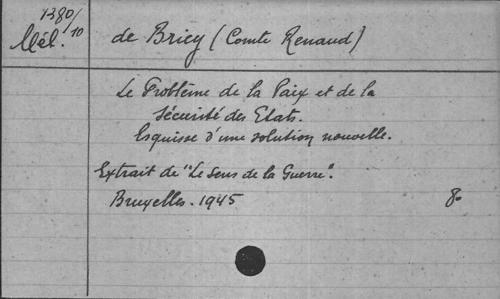 1380/
Mél. 10
de Bricy (Comte Renaud)
Le Problème de la Paix et de la
Sécurité des Etats.
Esquisse d'une solution nouvelle.
Extrait de "Le Sens de la Guerre".
Bruxelles. 1945 8°